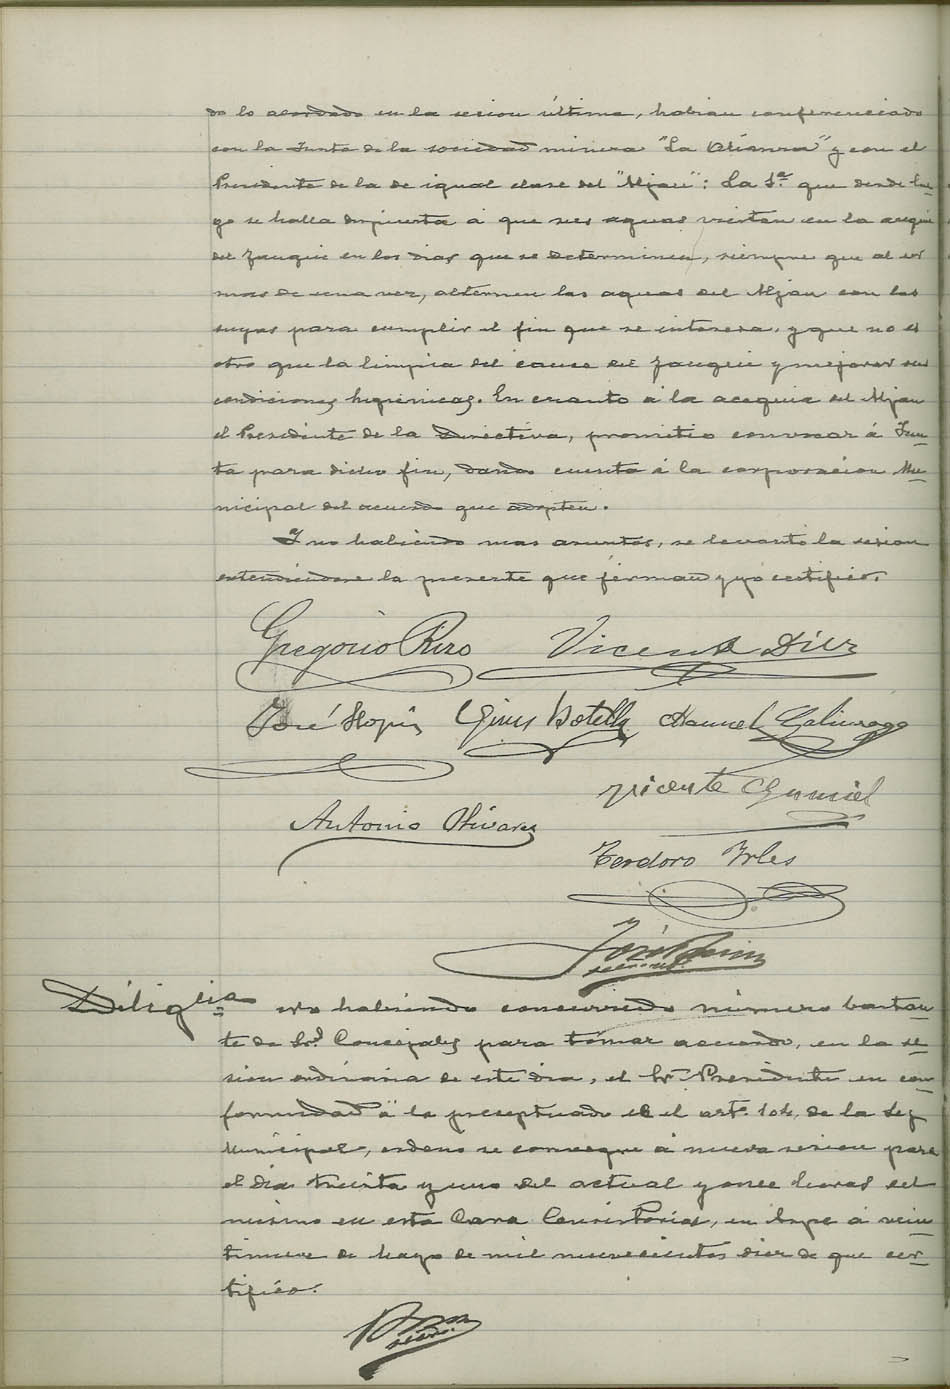 do lo acordado en la sesion última, habian conferenciado
con la Junta de la sociedad minera "La Alianza" y con el
Presidente de la de igual clase del "Mjau": La 1ª que desde lue-
go se halla dispuesta á que sus aguas viertan en la
del Zanque en los dias que se determinen, siempre que al
mas de una vez, alternen las aguas del Mjau con las
suyas para cumplir el fin que se interesa, y que no es
otro que la limpia del cauce del Zanque y mejorar sus
condiciones higienicas. En cuanto á la acequia del Mjau
el Presidente de la Directiva, prometió convocar á Jun-
ta para dicho fin, dando cuenta á la corporacion Mu-
nicipal del acuerdo que adopten.
Y no habiendo mas asuntos, se levantó la sesion
estendiendose la presente que firman y yo certifico.
Gregorio Rizo Vicente Diez
José Hopis Gines Botella Manuel
Vicente Gumiel
Antonio Olivares
Teodoro Irles
José
Diligcia
No habiendo concurrido número bastan-
te de Sres Concejales para tomar acuerdo, en la se-
sion ordinaria de este dia, el Sr Presidente en con-
formidad á lo preseptuado el el artº 104, de la Ley
Municipal, ordenó se convoque á nueva sesion para
el dia treinta y uno del actual y once horas del
mismo en esta Casa Consistorial, en Aspe á vein
tinueve de Mayo de mil novecientos diez de que cer-
tifico.